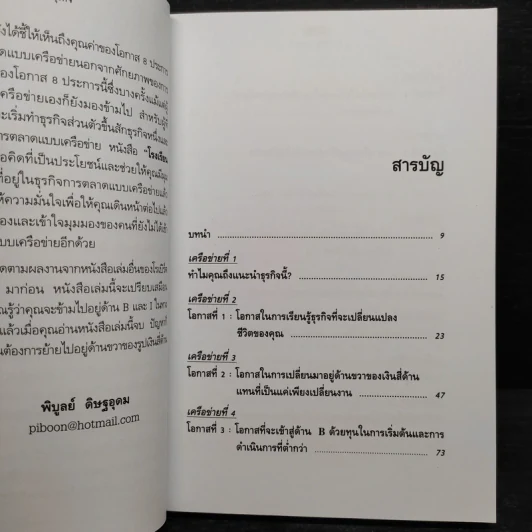 ังได้ชี้ให้เห็นถึงคุณค่าของโอกาส 8 ประการ
าดแบบเครือข่ายนอกจากศักยภาพของการ
องโอกาส 8 ประการนี้ซึ่งบางครั้งแม้แต่ผู้
ครือข่ายเองก็ยังมองข้ามไป สำหรับผู้ที่
ะเริ่มทำธุรกิจส่วนตัวขึ้นสักธุรกิจหนึ่งและ
ารตลาดแบบเครือข่าย หนังสือ "โรงเรียน
อคิดที่เป็นประโยชน์และช่วยให้คุณมีมุม
ที่อยู่ในธุรกิจการตลาดแบบเครือข่ายแล้ว
ห้ความมั่นใจเพื่อให้คุณเดินหน้าต่อไปแล้ว
องและเข้าใจมุมมองของคนที่ยังไม่ได้เข้
บบเครือข่ายอีกด้วย
ดตามผลงานจากหนังสือเล่มอื่นของโรเบิร์ต
มาก่อน หนังสือเล่มนี้จะเปรียบเสมือน
ณรู้ว่าคุณจะข้ามไปอยู่ด้าน B และ I ในการ
แล้วเมื่อคุณอ่านหนังสือเล่มนี้จบ ปัญหาที่
นต้องการย้ายไปอยู่ด้านขวาของรูปเงินสี่ด้าน
พิบูลย์ ดิษฐอุดม
piboon@hotmail.com
สารบัญ
บทนำ 9
เครือข่ายที่ 1
ทำไมคุณถึงแนะนำธุรกิจนี้? 15
เครือข่ายที่ 2
โอกาสที่ 1 : โอกาสในการเรียนรู้ธุรกิจที่จะเปลี่ยนแปลง
ชีวิตของคุณ 23
เครือข่ายที่ 3
โอกาสที่ 2 : โอกาสในการเปลี่ยนมาอยู่ด้านขวาของเงินสี่ด้าน
แทนที่เป็นแค่เพียงเปลี่ยนงาน 47
เครือข่ายที่ 4
โอกาสที่ 3 : โอกาสที่จะเข้าสู่ด้าน B ด้วยทุนในการเริ่มต้นและการ
ดำเนินการที่ต่ำกว่า 73